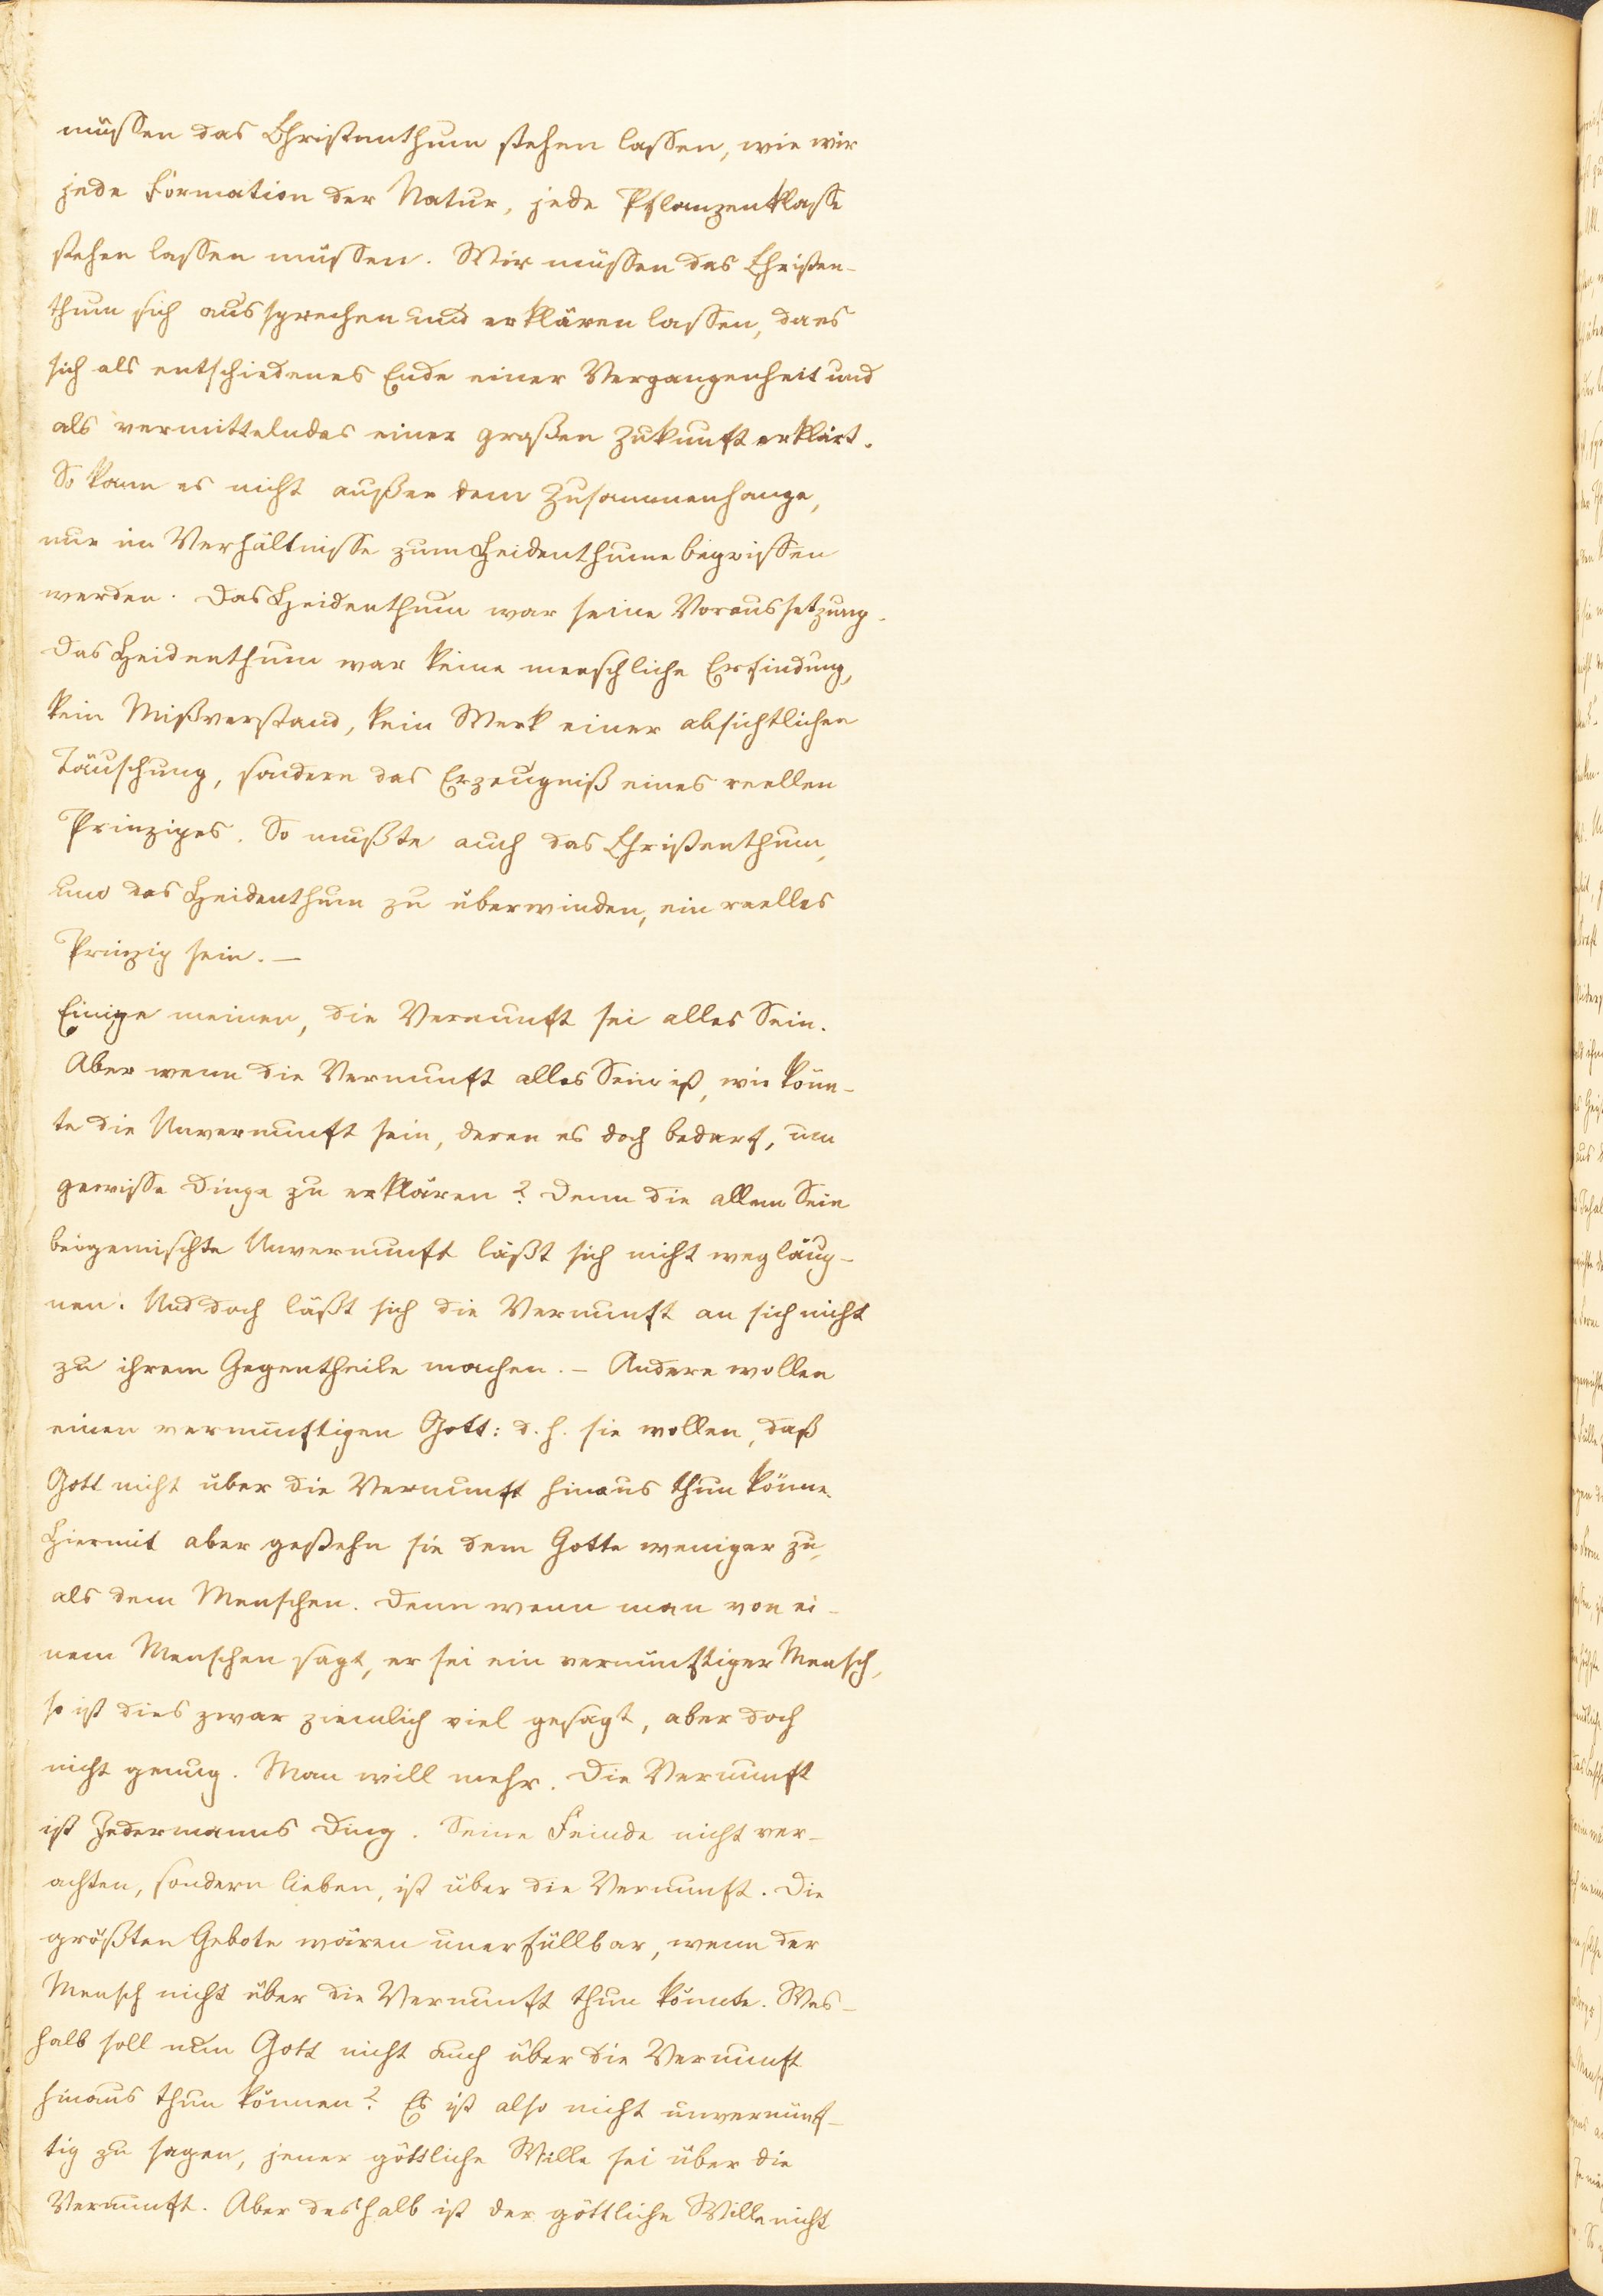 müssen das Christenthum stehen lassen, wie wir
jede Formation der Natur, jede Pflanzenklasse
stehen lassen müssen. Wir müssen das Christen-
thum sich aussprechen und erklären lassen, da es
sich als entschiedenes Ende einer Vergangenheit und
als vermittelndes einer großen Zukunft erklärt.
So kann es nicht außer dem Zusammenhange,
nur im Verhältnisse zum Heidenthume begriffen
werden. Das Heidenthum war seine Voraussetzung.
Das Heidenthum war keine menschliche Erfindung,
kein Mißverstand, kein Werk einer absichtlichen
Täuschung, sondern das Erzeugniß eines reellen
Prinzipes. So mußte auch das Christenthum,
um das Heidenthum zu überwinden, ein reelles
Prinzip sein. —
Einige meinen, die Vernunft sei alles Sein.
Aber wenn die Vernunft alles Sein ist, wie könn-
te die Unvernunft sein, deren es doch bedarf, um
gewisse Dinge zu erklären? Denn die allem Sein
beigemischte Unvernunft läßt sich nicht wegläug-
nen. Und doch läßt sich die Vernunft an sich nicht
zu ihrem Gegentheile machen. – Andere wollen
einen vernünftigen Gott: d. h. sie wollen, daß
Gott nicht über die Vernunft hinaus thun könne.
Hiermit aber gestehn sie dem Gotte weniger zu,
als dem Menschen. Denn wenn man von ei-
nem Menschen sagt, er sei ein vernünftiger Mensch,
so ist dies zwar ziemlich viel gesagt, aber doch
nicht genug. Man will mehr. Die Vernunft
ist Jedermanns Ding. Seine Feinde nicht ver-
achten, sondern lieben, ist über die Vernunft. Die
größten Gebote wären unerfüllbar, wenn der
Mensch nicht über die Vernunft thun könnte. Wes-
halb soll nun Gott nicht auch über die Vernunft
hinaus thun können? Es ist also nicht unvernünf-
tig zu sagen, jener göttliche Wille sei über die
Vernunft. Aber deshalb ist der göttliche Wille nicht